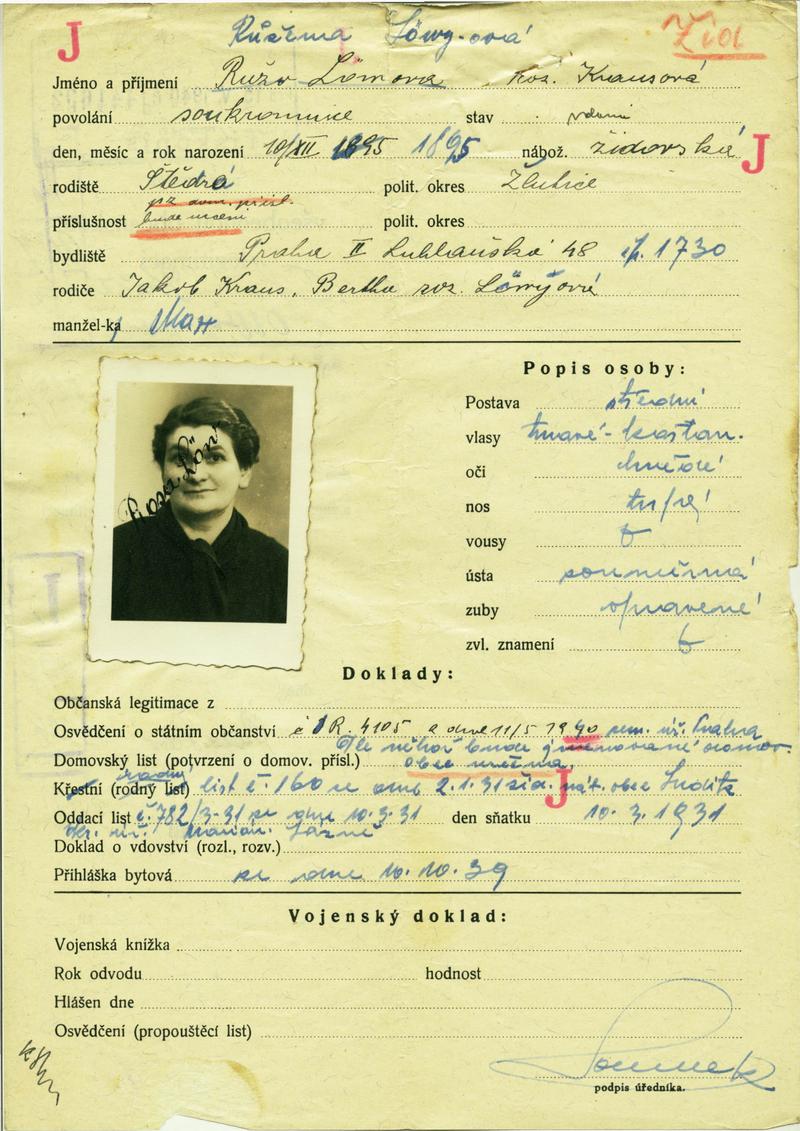 J Růžena Löwy-ová Žid
Jméno a příjmení Růžo Lömova roz. Krausová
povolání soukromnice stav vdaná
den, měsíc a rok narození 10/XII 1895 1895 nábož. židovská J
rodiště Štědrá polit. okres Žlutice
příslušnost bude určena polit. okres
bydliště Praha II Lublaňská 48 čp. 1730
rodiče Jakob Kraus, Bertha roz. Löwyová
manžel-ka Max
Popis osoby:
Postava střední
vlasy tmavé-kaštan.
oči hnědé
nos
vousy
ústa souměrná
zuby opravené
zvl. znamení
Rosa Löw
Doklady:
Občanská legitimace z
Osvědčení o státním občanství č R. 4105 z dne 11/5 1940 zem. úř. Praha
Dle něhož bude jmenované domov.
Domovský list (potvrzení o domov. přísl.) obec určena.
Křestní (rodný list) list č. 160 ze dne 2.1.31 žid. nát. obce Luditz
J
Oddací list č. 782/3-31 ze dne 10.3.31 den sňatku 10.3.1931
okr. úř. Marián. Lázně
Doklad o vdovství (rozl., rozv.)
Přihláška bytová ze dne 10.10.39
Vojenský doklad:
Vojenská knížka
Rok odvodu hodnost
Hlášen dne
Osvědčení (propouštěcí list)
podpis úředníka.